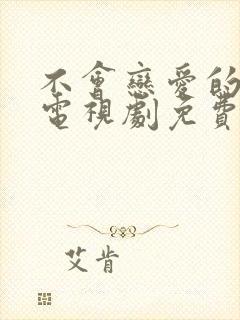 不會戀愛的
電視劇免費
艾肯